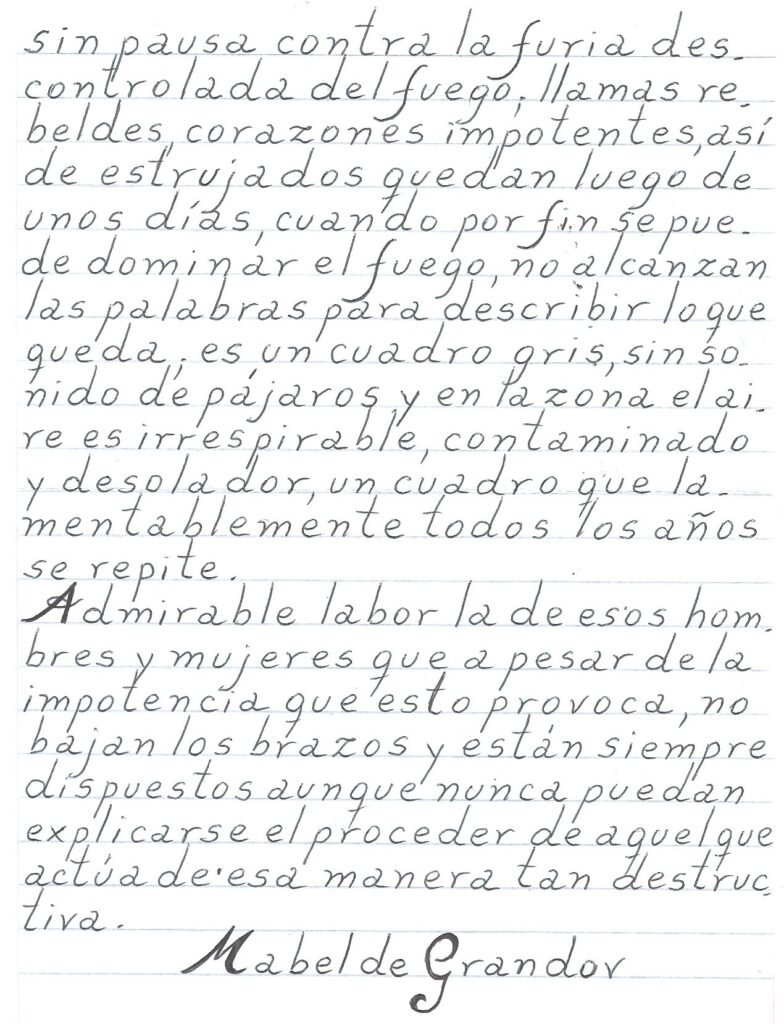 sin pausa contra la furia des-
controlada del fuego; llamas re-
beldes, corazones impotentes, así
de estrujados quedan luego de
unos días, cuando por fin se pue-
de dominar el fuego, no alcanzan
las palabras para describir lo que
queda; es un cuadro gris, sin so-
nido de pájaros y en la zona el ai-
re es irrespirable, contaminado
y desolador, un cuadro que la-
mentablemente todos los años
se repite.
Admirable labor la de esos hom-
bres y mujeres que a pesar de la
impotencia que esto provoca, no
bajan los brazos y están siempre
dispuestos aunque nunca puedan
explicarse el proceder de aquel que
actúa de esa manera tan destruc-
tiva.
Mabel de Grandov